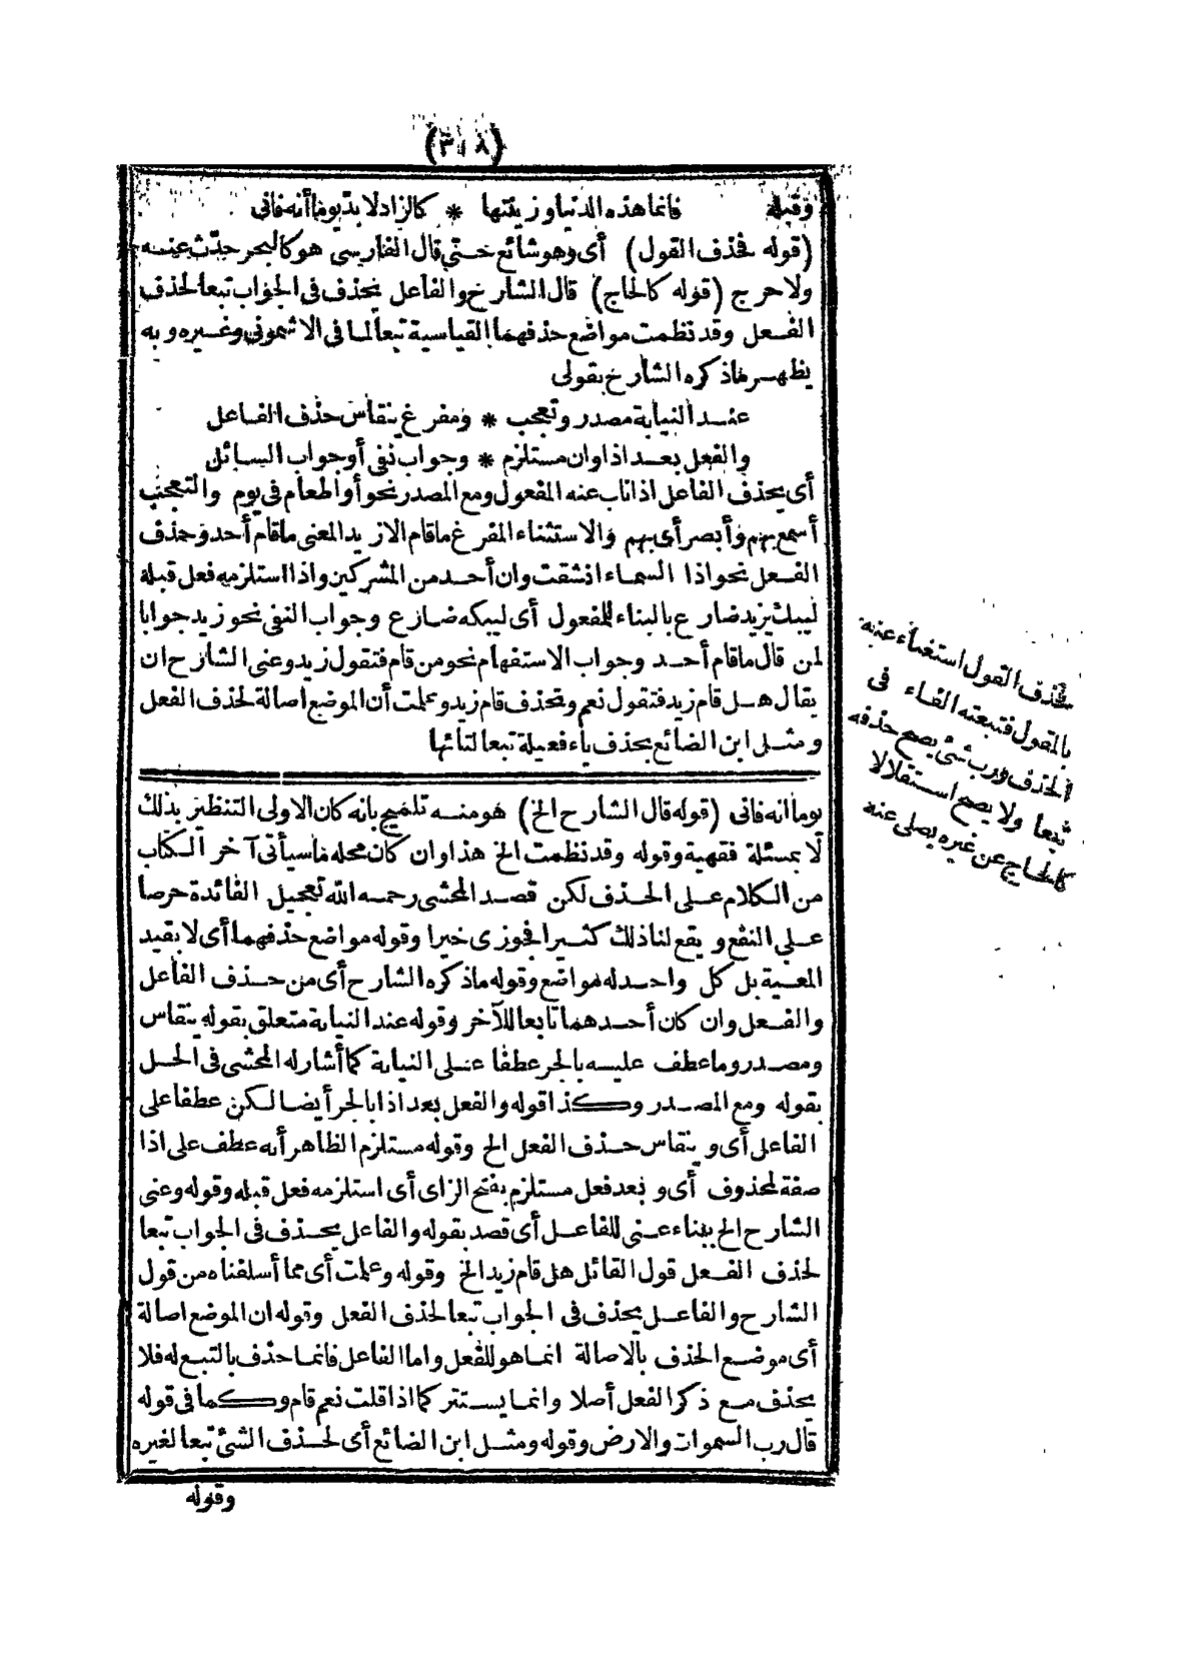 (٣١٨)
وقبله فانما هذه الدنيا وزينتها * كالزاد لا بد يوما أنه فانى
(قوله فحذف القول) أى وهو شائع حتى قال الفارسى هو كالبحر حدّث عنه
ولا حرج (قوله كالحاج) قال الشارخ والفاعل يحذف فى الجواب تبعا لحذف
الفعل وقد نظمت مواضع حذفهما القياسية تبعا لما فى الاشمونى وغيره وبه
يظهر ماذكره الشارخ بقولى
عند النيابة مصدر وتعجب * ومفرغ ينقاس حذف الفاعل
والفعل بعد اذا وان مستلزم * وجواب نفى أو جواب السائل
أى يحذف الفاعل اذا ناب عنه المفعول ومع المصدر نحو أو اطعام فى يوم والتعجب
أسمع بهم وأبصر أى بهم والاستثناء المفرغ ما قام الا زيد المعنى ما قام أحد وحذف
الفعل نحو اذا السماء انشقت وان أحد من المشركين واذا استلزمه فعل قبله
ليبك يزيد ضارع بالبناء للمفعول أى ليبكه ضارع وجواب النفى نحو زيد جوابا
لمن قال ما قام أحد وجواب الاستفهام نحو من قام فتقول زيد وعنى الشارح ان
يقال هل قام زيد فتقول نعم وتحذف قام زيد وعلمت أن الموضع اصالة لحذف الفعل
ومثل ابن الضائع بحذف ياء فعيلة تبعا لتائها
بحذف القول استغناء عنه
بالمقول فتبعته الفاء فى
الحذف ورب شئ يصح حذفه
تبعا ولا يصح استقلالا
كالحاج عن غيره يصلى عنه
يوما انه فانى (قوله قال الشارح الخ) هو منه تلميح بانه كان الاولى التنظير بذلك
لا بمسئلة فقهية وقوله وقد نظمت الخ هذا وان كان محله ما سيأتى آخر الكتاب
من الكلام على الحذف لكن قصد المحشى رحمه الله تعجيل الفائدة حرصا
على النفع ويقع لنا ذلك كثيرا فجوزى خيرا وقوله مواضع حذفهما أى لا بقيد
المعية بل كل واحد له مواضع وقوله ماذكره الشارح أى من حذف الفاعل
والفعل وان كان أحدهما تابعا للآخر وقوله عند النيابة متعلق بقوله ينقاس
ومصدر وما عطف عليه بالجر عطفا على النيابة كما أشار له المحشى فى الحل
بقوله ومع المصدر وكذا قوله والفعل بعد اذا بالجر أيضا لكن عطفا على
الفاعل أى وينقاس حذف الفعل الخ وقوله مستلزم الظاهر أنه عطف على اذا
صفة لمحذوف أى وبعد فعل مستلزم بفتح الزاى أى استلزمه فعل قبله وقوله وعنى
الشارح الخ ببناء عنى للفاعل أى قصد بقوله والفاعل يحذف فى الجواب تبعا
لحذف الفعل قول القائل هل قام زيد الخ وقوله وعلمت أى مما أسلفناه من قول
الشارح والفاعل يحذف فى الجواب تبعا لحذف الفعل وقوله ان الموضع اصالة
أى موضع الحذف بالاصالة انما هو للفعل واما الفاعل فانما حذف بالتبع له فلا
يحذف مع ذكر الفعل أصلا وانما يستتر كما اذا قلت نعم قام وكما فى قوله
قال رب السموات والارض وقوله ومثل ابن الضائع أى لحذف الشئ تبعا لغيره
وقوله